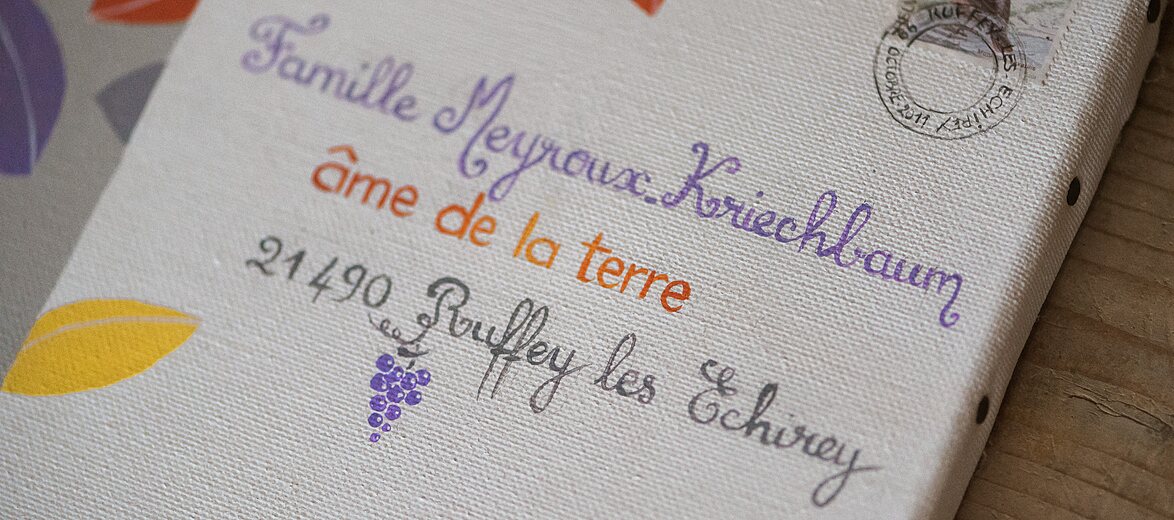 Famille Meyroux-Kriechbaum
âme de la terre
21490 Ruffey les Echirey
RUFFEY LES ECHIREY
OCTOBRE 2011